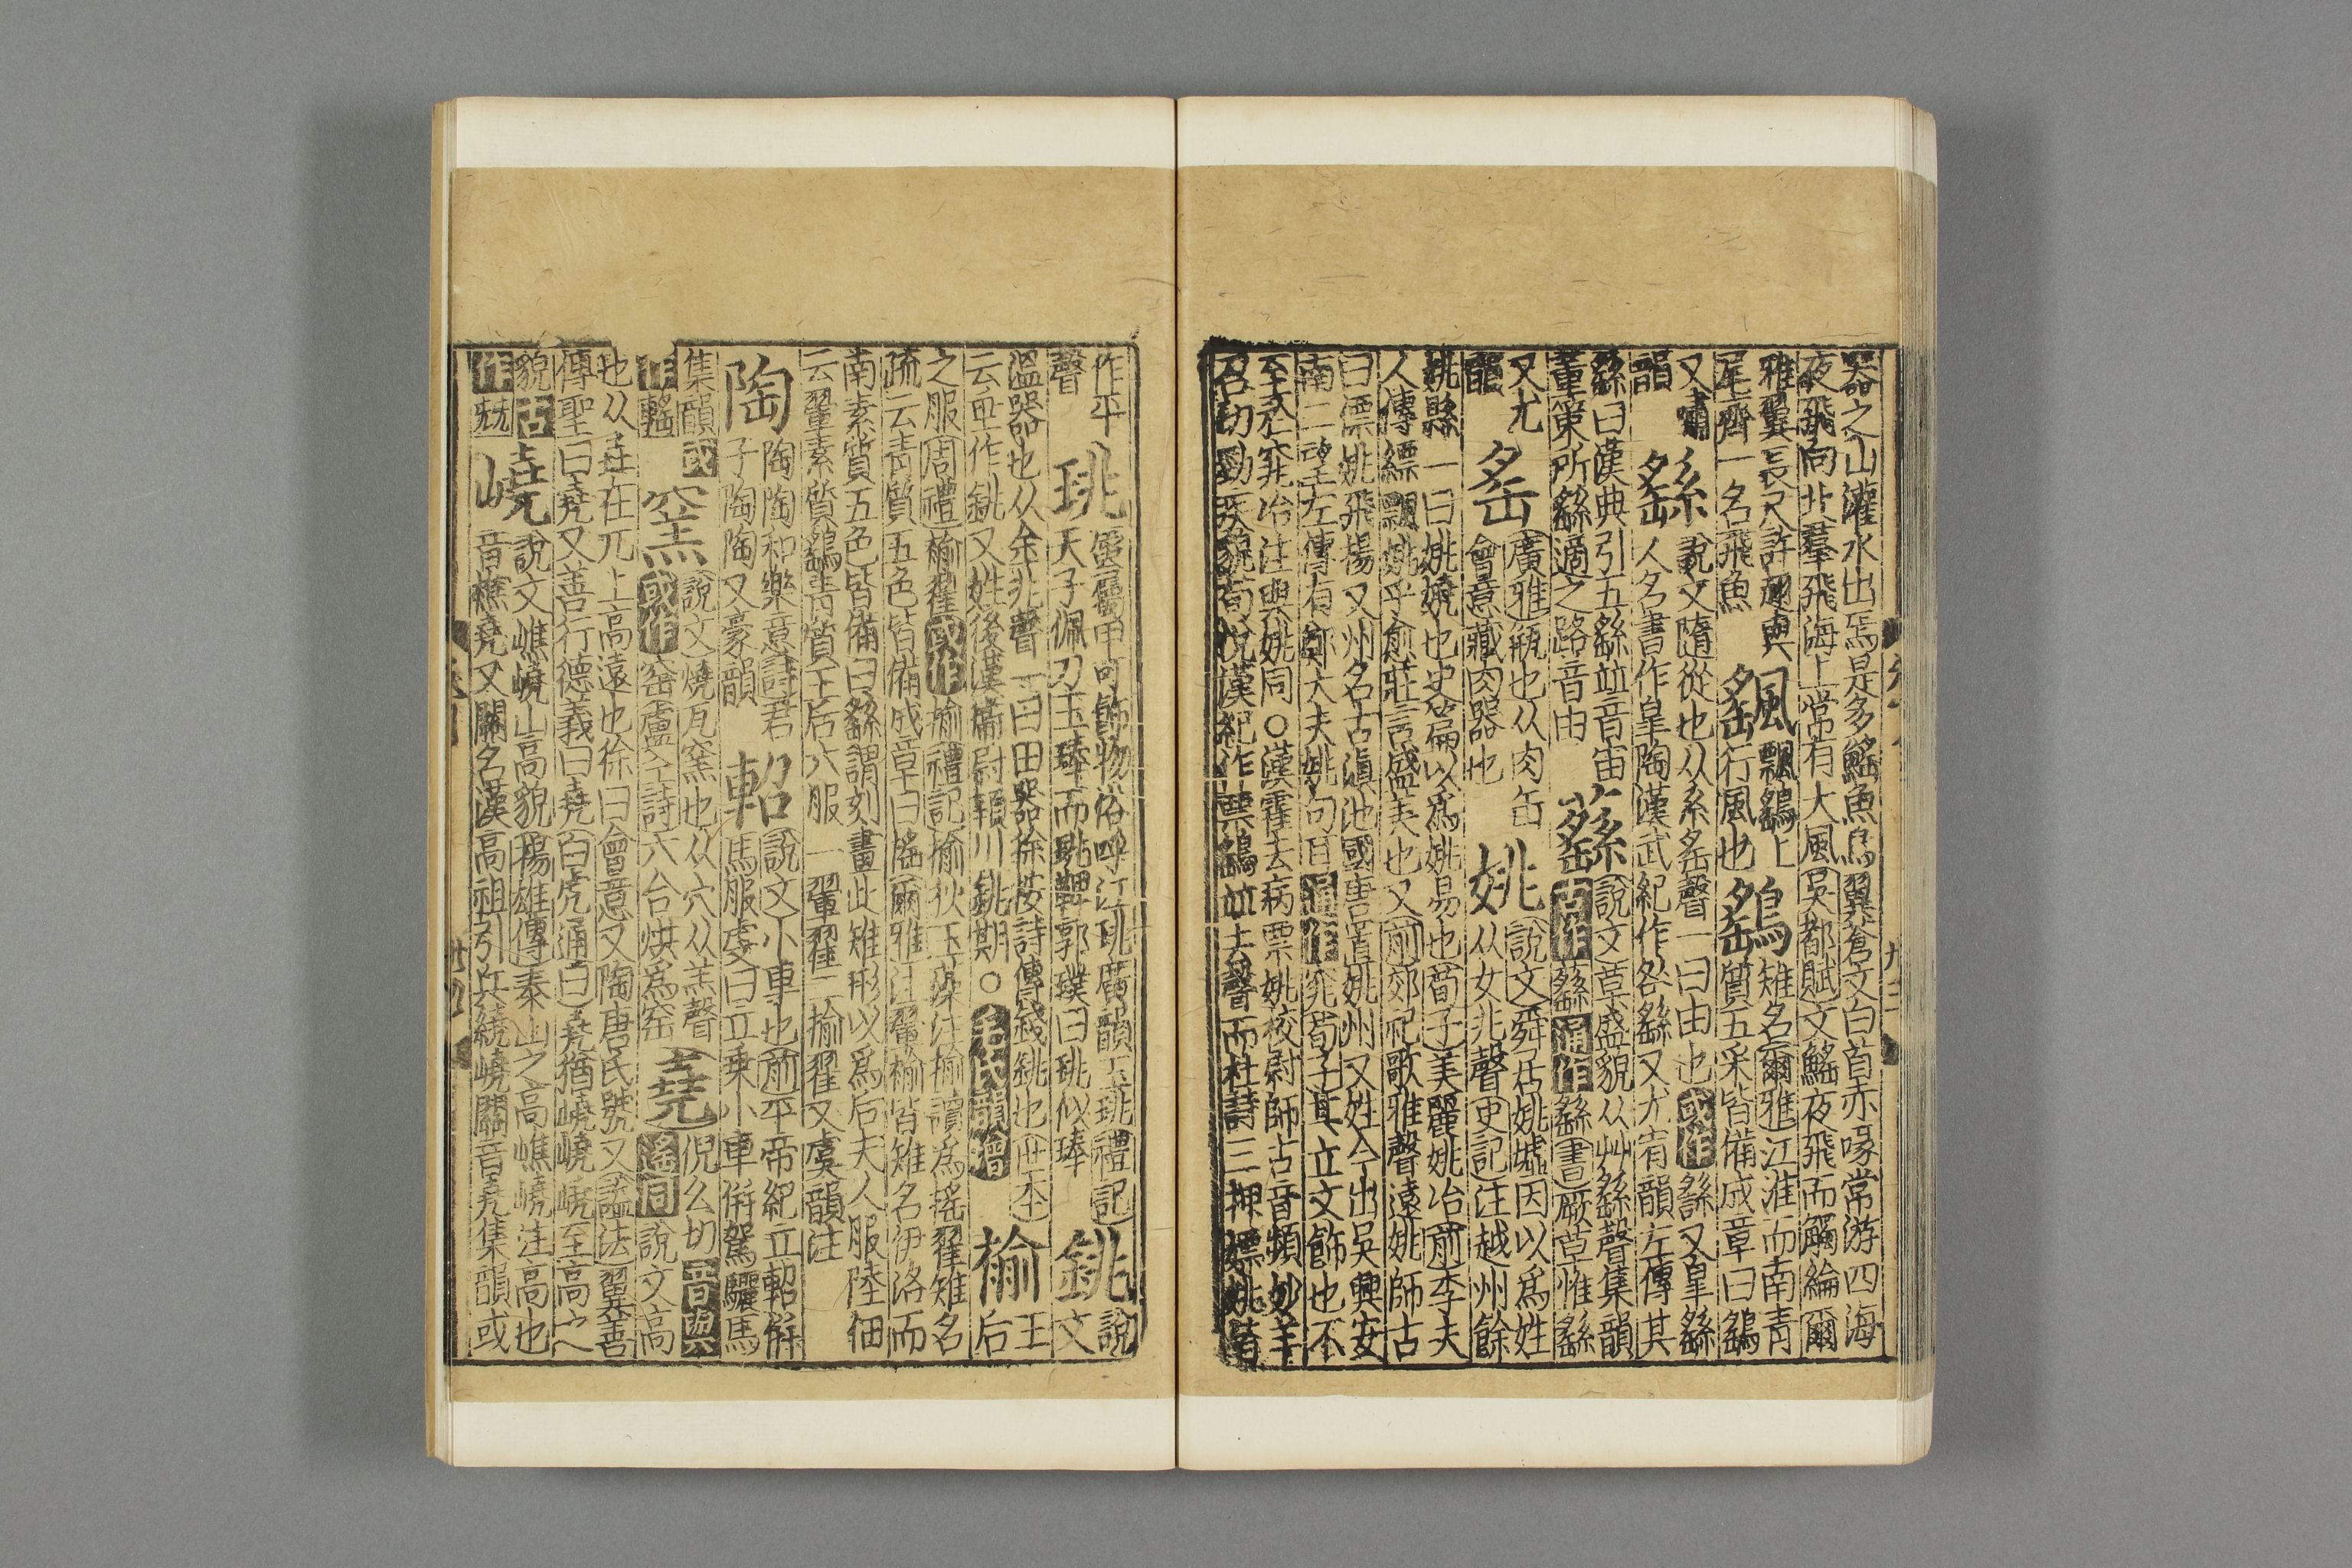 器之山灌水出焉是多鰩魚鳥翼蒼文白首赤喙常游四海
夜飛向北羣飛海上常有大風吳都賦文鰩夜飛而觸綸爾
雅翼長尺許翅與
尾齊一名飛魚
颻飄颻上
行風也
鷂雉名爾雅江淮而南青
質五采皆備成章曰鷂
又嘯
韻
繇說文隨從也从系䍃聲一曰由也或作繇又皐繇
人名書作皐陶漢武紀作咎繇又尤宥韻左傳其
繇曰漢典引五繇並音宙
董策所繇適之路音由
蘨說文草盛貌从艸繇聲集韻
古作蘨通作繇書厥草惟繇
又尤
韻
䍃廣雅瓶也从肉缶
會意藏肉器也
姚說文舜居姚墟因以爲姓
从女兆聲史記注越州餘
姚縣一曰姚嬈也史篇以爲姚易也荀子美麗姚冶前李夫
人傳縹飄姚乎愈莊言盛美也又前郊祀歌雅聲遠姚師古
曰僄姚飛揚又州名古滇池國唐置姚州又姓今出吳興安
南二望左傳有鄭大夫姚句耳通作窕荀子其立文飾也不
至於窕冶注與姚同○漢霍去病票姚校尉師古音頻妙羊
召切勁疾貌荀悅漢紀作票鷂並去聲而杜詩三押嫖姚皆
作平
聲
珧蜃屬甲可飾物俗呼江珧廣韻玉珧禮記
天子佩刀玉琫而珧鞞郭璞曰珧似琫
銚說
文
溫器也从金兆聲一曰田器徐按詩傳錢銚也世本
云垂作銚又姓後漢衛尉潁川銚期○毛氏韻增
褕王
后
之服周禮褕翟或作揄禮記揄狄玉藻注揄讀爲搖翟雉名
疏云青質五色皆備成章曰鷂爾雅注鷂褕皆雉名伊洛而
南素質五色皆備曰翬謂刻畫此雉形以爲后夫人服陸佃
云翬素質鷂青質王后六服一翬翟二揄翟又虞韻注
陶陶陶和樂意詩君
子陶陶又豪韻
軺說文小車也前平帝紀立軺併
馬服虔曰立乘小車併駕驪馬
集韻或
作䡛
窯說文燒瓦窯也从穴从羔聲
或作窑盧仝詩六合烘爲窑
堯倪么切音與
遙同說文高
也从垚在兀上高遠也徐曰會意又陶唐氏號又諡法翼善
傳聖曰堯又善行德義曰堯白虎通曰堯猶嶢嶢嶢至高之
貌古
作𡯍
嶢說文嶕嶢山高貌揚雄傳泰山之高嶕嶢注高也
音樵堯又關名漢高祖引兵繞嶢關音堯集韻或